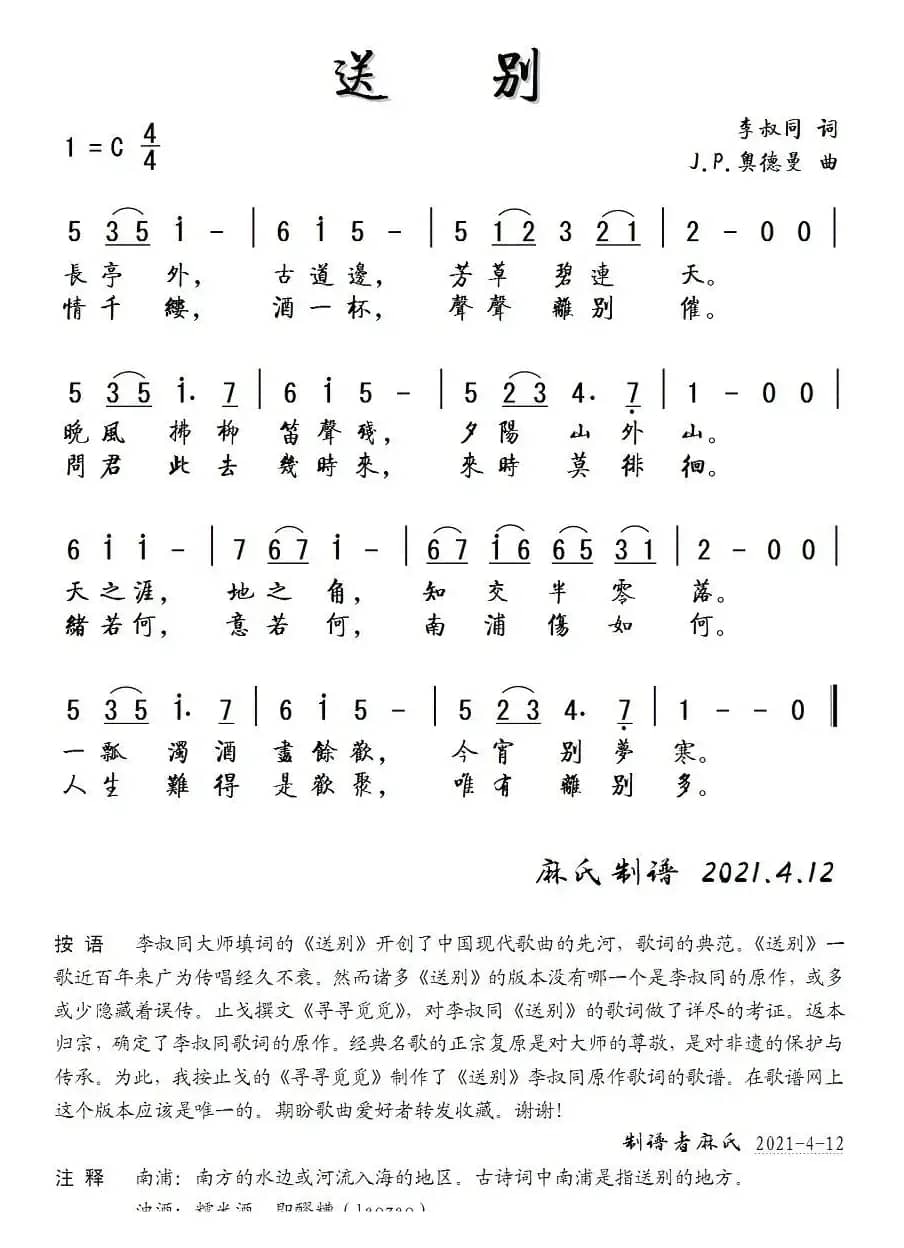 送 别
1 = C 4/4
李叔同 词
J.P.奥德曼 曲
5 3 5 i - | 6 i 5 - | 5 1 2 3 2 1 | 2 - 0 0 |
長亭 外， 古道邊， 芳草 碧連 天。
情千 縷， 酒一杯， 聲聲 離别 催。
5 3 5 i. 7 | 6 i 5 - | 5 2 3 4. 7 | 1 - 0 0 |
晚風 拂柳 笛聲殘， 夕陽 山外山。
問君 此去 幾時來， 來時 莫徘徊。
6 i i - | 7 6 7 i - | 6 7 i 6 6 5 3 1 | 2 - 0 0 |
天之涯， 地之 角， 知交半零落。
緒若何， 意若 何， 南浦傷如何。
5 3 5 i. 7 | 6 i 5 - | 5 2 3 4. 7 | 1 - - 0 ‖
一瓢 濁酒 盡餘歡， 今宵 别夢寒。
人生 難得 是歡聚， 唯有 離别多。
麻氏制谱 2021.4.12
按 语 李叔同大师填词的《送别》开创了中国现代歌曲的先河，歌词的典范。《送别》一
歌近百年来广为传唱经久不衰。然而诸多《送别》的版本没有哪一个是李叔同的原作，或多
或少隐藏着误传。止戈撰文《寻寻觅觅》，对李叔同《送别》的歌词做了详尽的考证。返本
归宗，确定了李叔同歌词的原作。经典名歌的正宗复原是对大师的尊敬，是对非遗的保护与
传承。为此，我按止戈的《寻寻觅觅》制作了《送别》李叔同原作歌词的歌谱。在歌谱网上
这个版本应该是唯一的。期盼歌曲爱好者转发收藏。谢谢！
制谱者麻氏 2021-4-12
注 释 南浦：南方的水边或河流入海的地区。古诗词中南浦是指送别的地方。